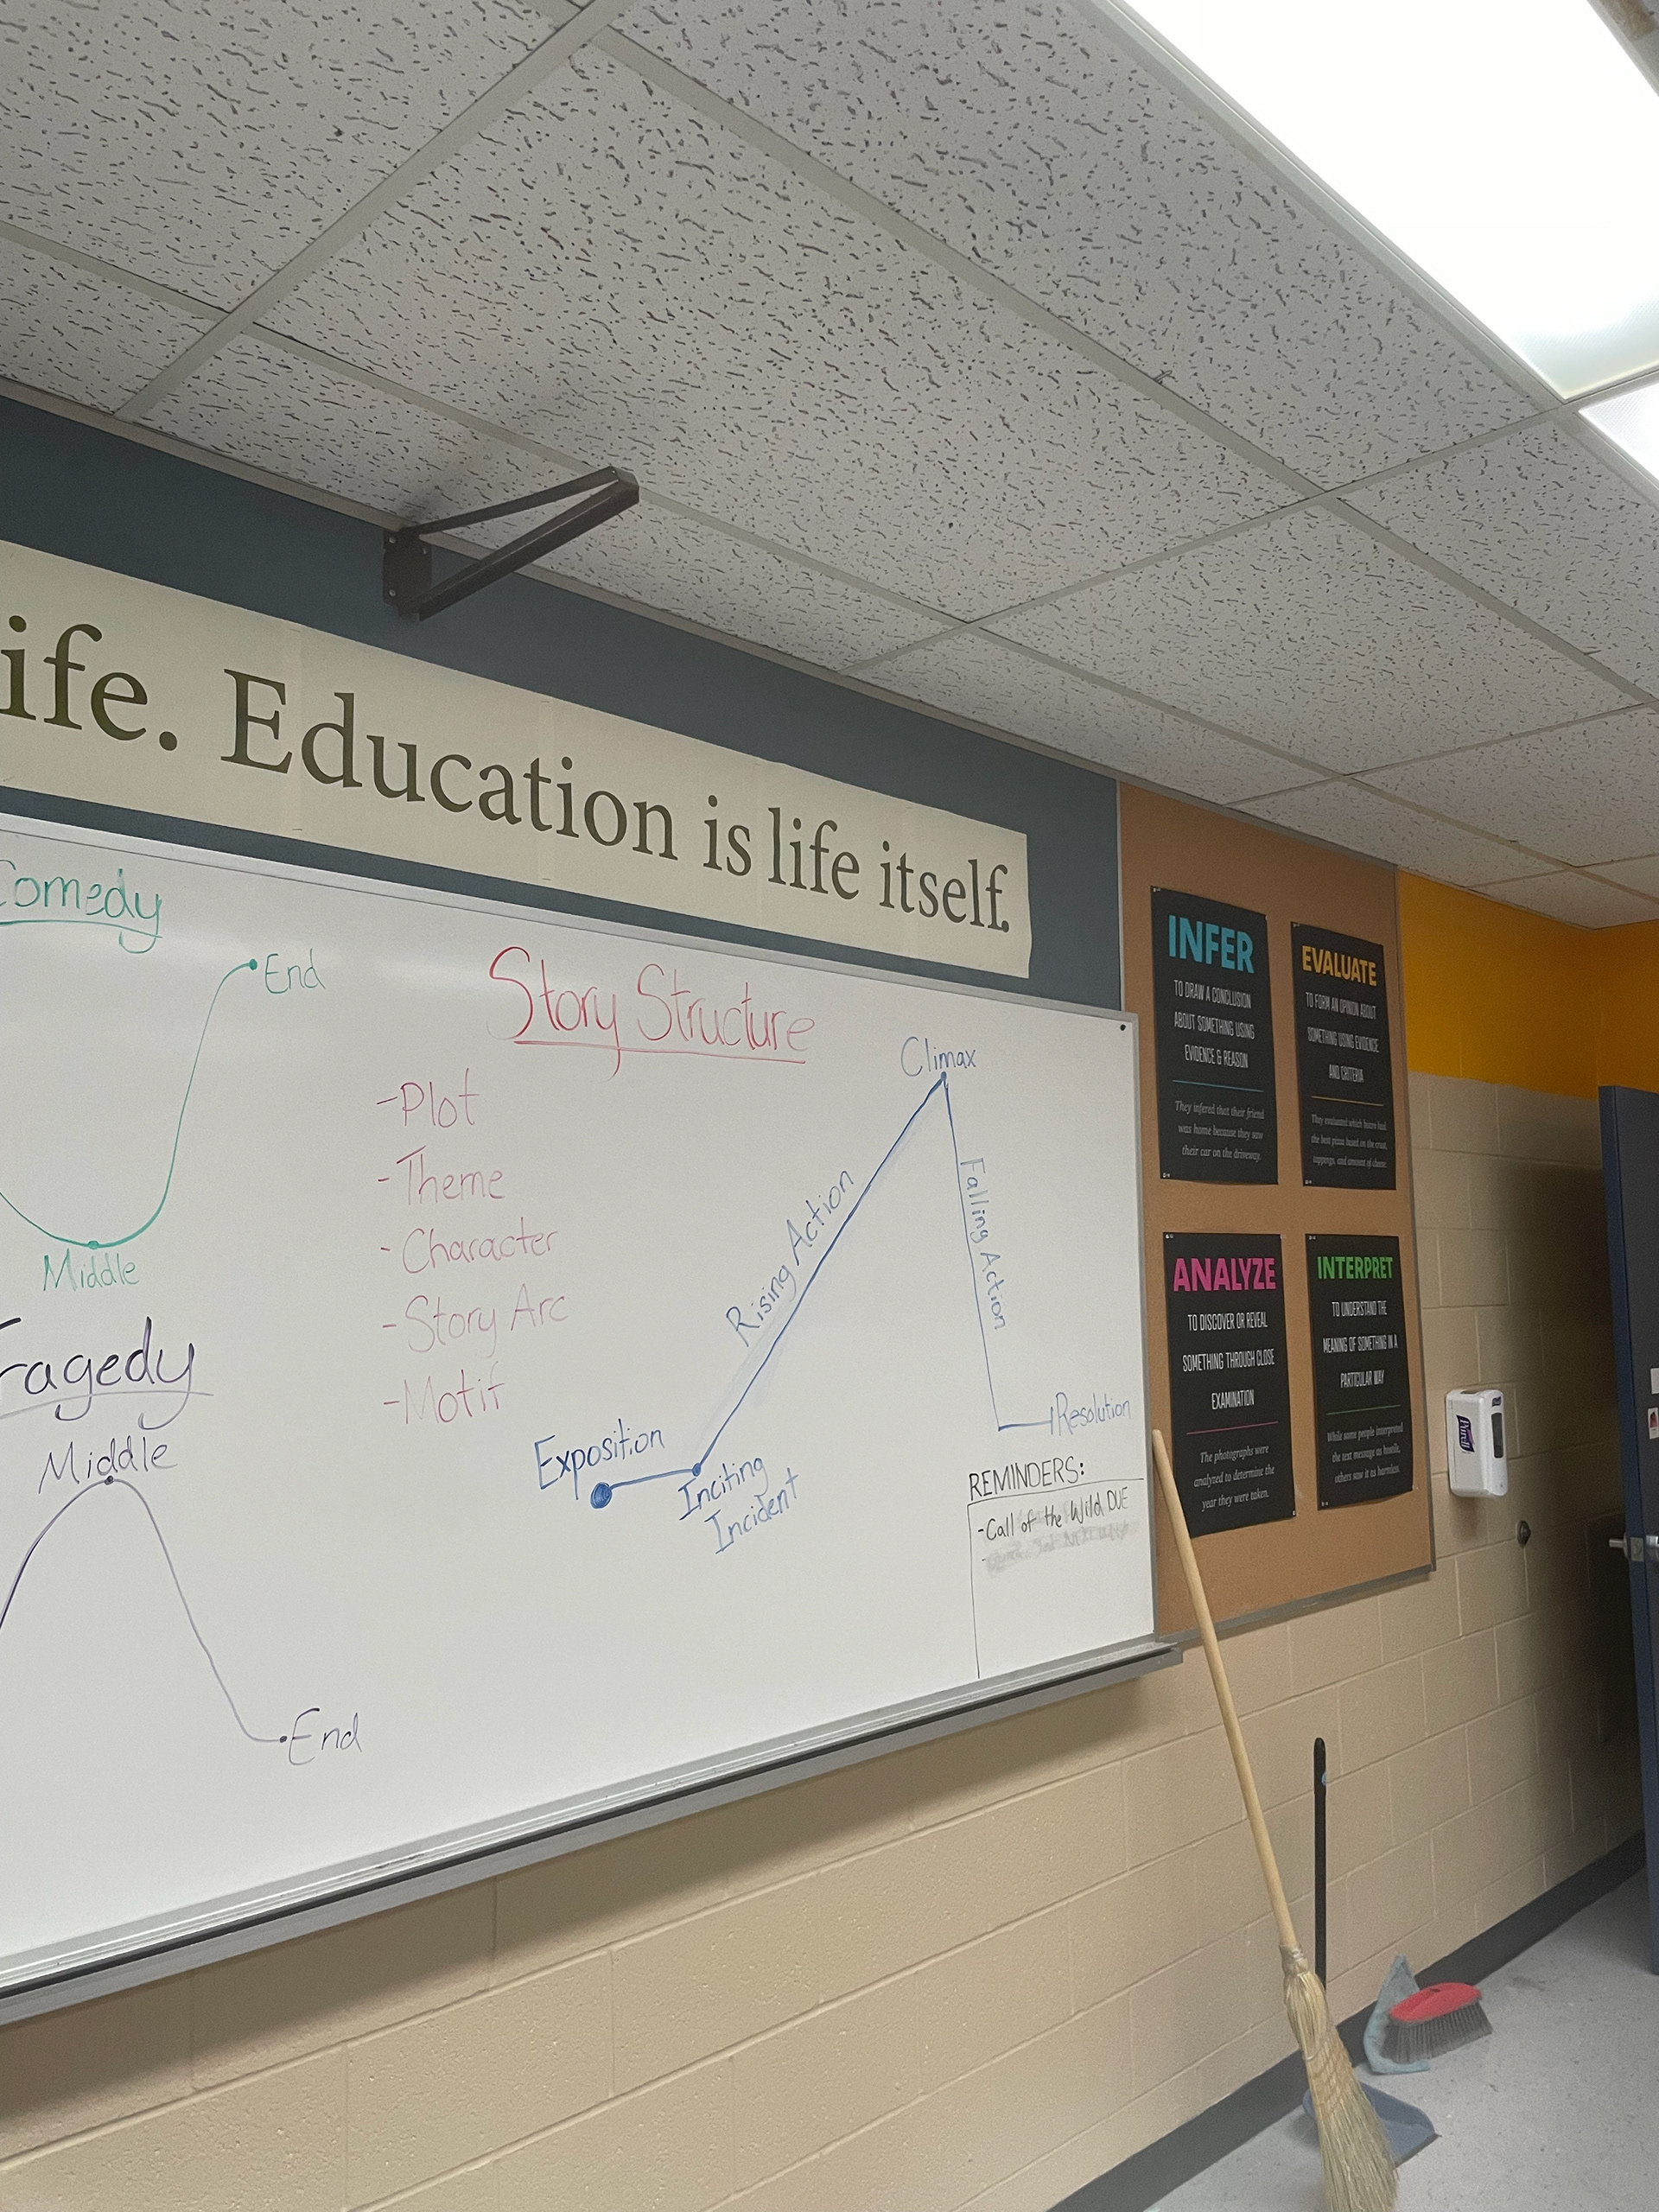 ife. Education is life itself.
Comedy
End
Middle
ragedy
Middle
End
Story Structure
-Plot
-Theme
-Character
-Story Arc
-Motif
Exposition
Inciting
Incident
Rising Action
Climax
Falling Action
Resolution
REMINDERS:
-Call of the Wild DUE
-
INFER
TO DRAW A CONCLUSION
ABOUT SOMETHING USING
EVIDENCE & REASON
They infered that their friend
was home because they saw
their car on the driveway.
EVALUATE
TO FORM AN OPINION ABOUT
SOMETHING USING EVIDENCE
AND CRITERIA
They evaluated which bistro had
the best pizza based on the crust,
toppings, and amount of cheese.
ANALYZE
TO DISCOVER OR REVEAL
SOMETHING THROUGH CLOSE
EXAMINATION
The photographs were
analyzed to determine the
year they were taken.
INTERPRET
TO UNDERSTAND THE
MEANING OF SOMETHING IN A
PARTICULAR WAY
While some people interpreted
the text message as hostile,
others saw it as harmless.
Purell